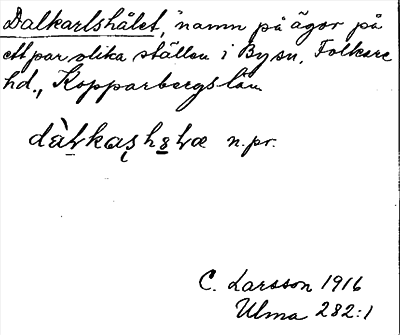 Dalkarlshålet, namn på ägor på
ett par olika ställen i By sn, Folkare
hd., Kopparbergs län
n.pr.
C. Larsson 1916
Ulma 282:1